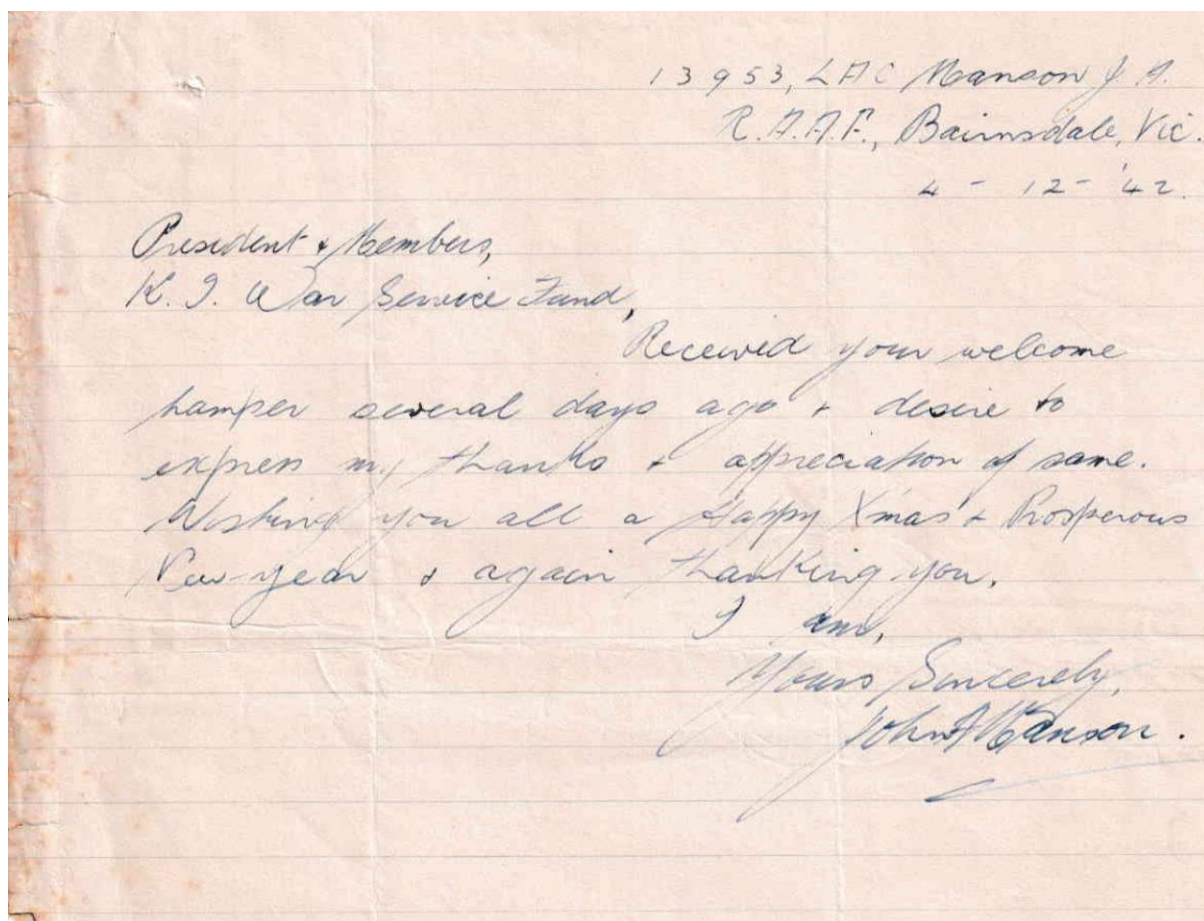 13953, LAC Manson J. A.
R.A.A.F., Bairnsdale, Vic.
4 - 12 - '42.
President & Members,
K. I. War Service Fund,
Received your welcome
hamper several days ago & desire to
express my thanks & appreciation of same.
Wishing you all a Happy X'mas & Prosperous
New-year & again thanking you.
I am,
Yours Sincerely,
John A Manson.